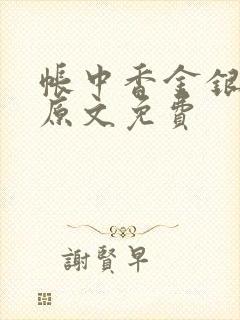 帳中香金銀
原文免費
謝賢早